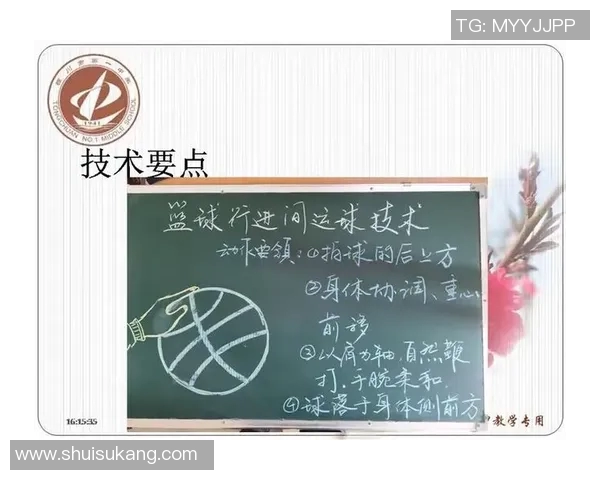 TG: MYYJJPP
TONGCHUAN NO.1 MIDDLE SCHOOL
1941
技术要点
篮球行进间运球技术
动作要领:①拍球的后上方
②身体协调、重心
前移
③以肩为轴,自然鞭
打,手腕柔和.
④球落于身体侧前方
16:15:35
教学专用
www.shuisukang.com